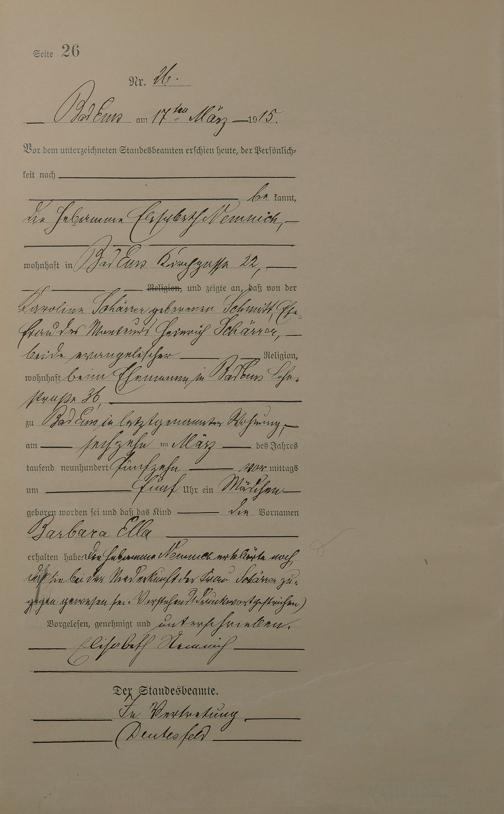 Seite 26
Nr. 26.
Bad Ems am 17ten März 1915.
Vor dem unterzeichneten Standesbeamten erschien heute, der Persönlich-
keit nach
be kannt,
die Hebamme Elisabeth Nemnich,
wohnhaft in Bad Ems Kirchgasse 22,
Religion, und zeigte an, daß von der
Karoline Schärer geborenen Schmitt Ehe-
frau des Heinrich Schärer,
beide evangelischer Religion,
wohnhaft beim Ehemann in Bad Ems
straße 36,
zu Bad Ems, in letztgenannter Wohnung,
am sechzehn ten März des Jahres
tausend neunhundert fünfzehn vor mittags
um fünf Uhr ein Mädchen
geboren worden sei und daß das Kind die Vornamen
Barbara Ella
erhalten habe. Die Hebamme Nemnich erklärte noch,
daß sie bei der Niederkunft der Frau Schärer zu-
gegen gewesen sei. Vorstehend 1 Druckwort gestrichen)
Vorgelesen, genehmigt und unterschrieben.
Elisabeth Nemnich
Der Standesbeamte.
In Vertretung